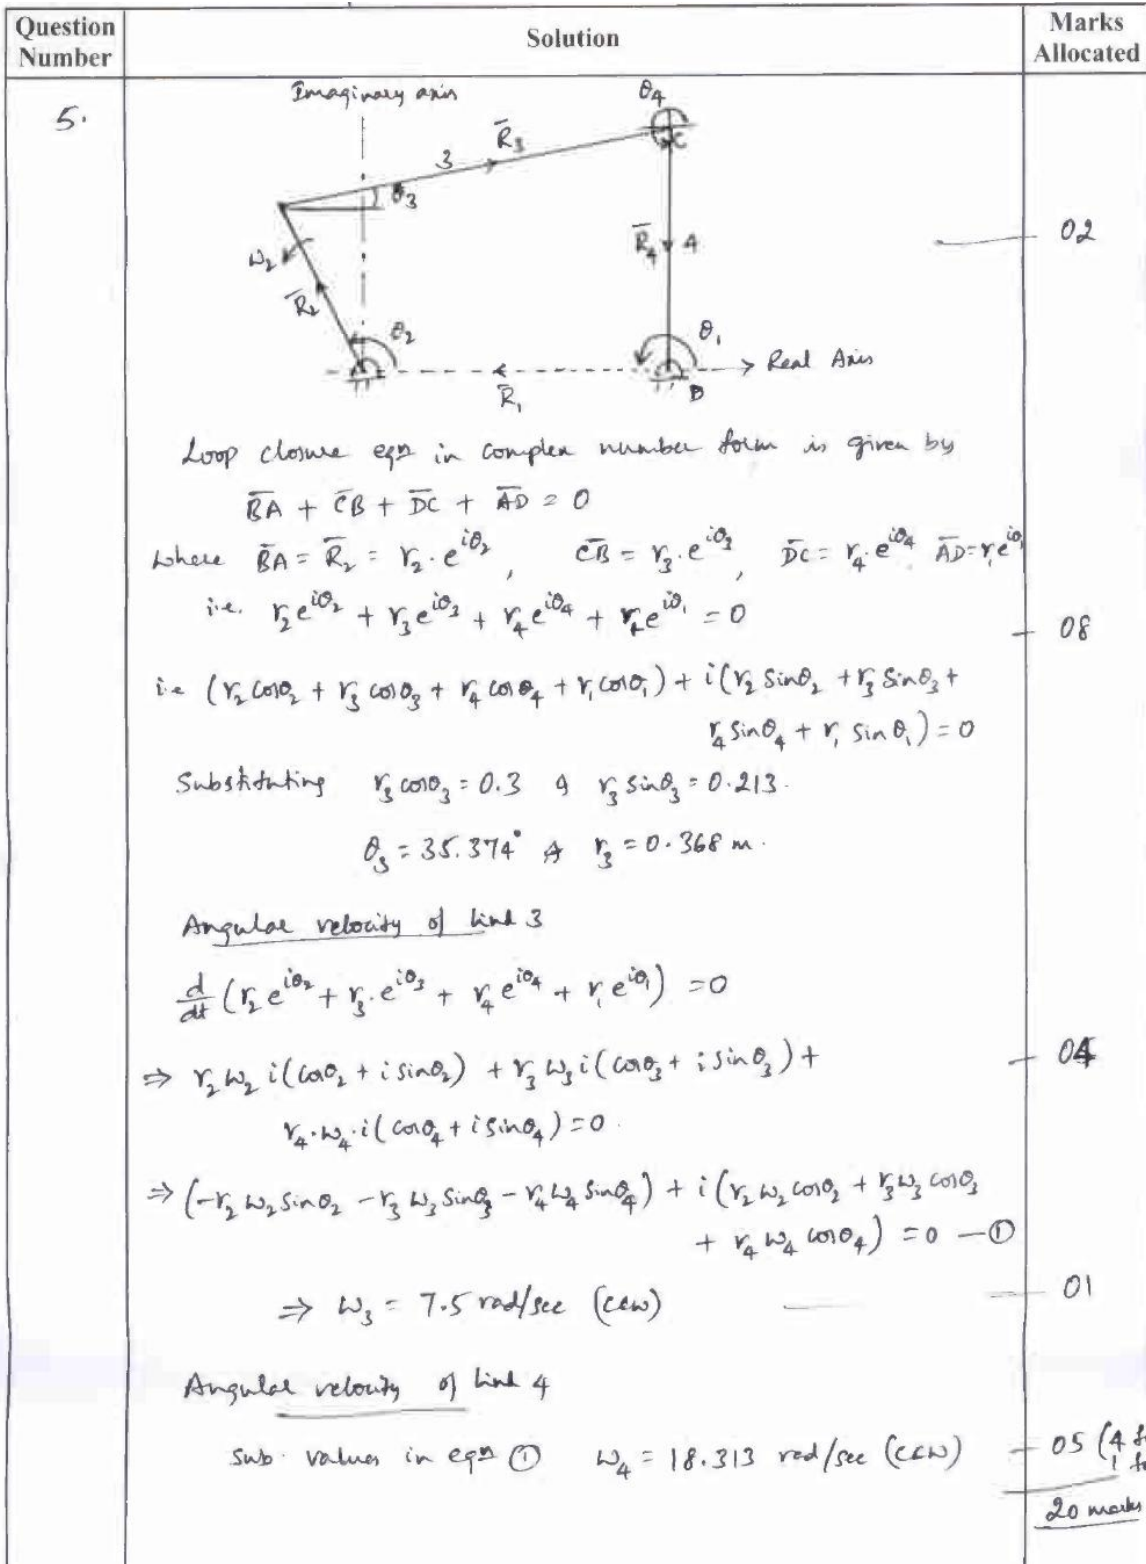 Question Number
Solution
Marks Allocated
5.
Imaginary axis
θ4
R̄3
3
C
θ3
ω2
R̄4 4
02
R̄2
θ2
θ1
Real Axis
R̄1
D
Loop closure eqn in complex number form is given by
B̄A + C̄B + D̄C + ĀD = 0
where B̄A = R̄2 = r2·e^{iθ2}, C̄B = r3·e^{iθ3}, D̄C = r4·e^{iθ4} ĀD = r1e^{iθ1}
i.e. r2e^{iθ2} + r3e^{iθ3} + r4e^{iθ4} + r1e^{iθ1} = 0
08
i.e (r2 cosθ2 + r3 cosθ3 + r4 cosθ4 + r1 cosθ1) + i(r2 sinθ2 + r3 sinθ3 +
r4 sinθ4 + r1 sinθ1) = 0
Substituting r3 cosθ3 = 0.3 & r3 sinθ3 = 0.213.
θ3 = 35.374° & r3 = 0.368 m.
Angular velocity of link 3
d/dt (r2 e^{iθ2} + r3·e^{iθ3} + r4 e^{iθ4} + r1 e^{iθ1}) = 0
⇒ r2 ω2 i(cosθ2 + i sinθ2) + r3 ω3 i(cosθ3 + i sinθ3) +
04
r4·ω4·i(cosθ4 + i sinθ4) = 0.
⇒ (-r2 ω2 sinθ2 - r3 ω3 sinθ3 - r4 ω4 sinθ4) + i(r2 ω2 cosθ2 + r3 ω3 cosθ3
+ r4 ω4 cosθ4) = 0 — ①
⇒ ω3 = 7.5 rad/sec (ccw)
01
Angular velocity of link 4
Sub. values in eqn ① ω4 = 18.313 rad/sec (ccw)
05 (4
1
20 marks